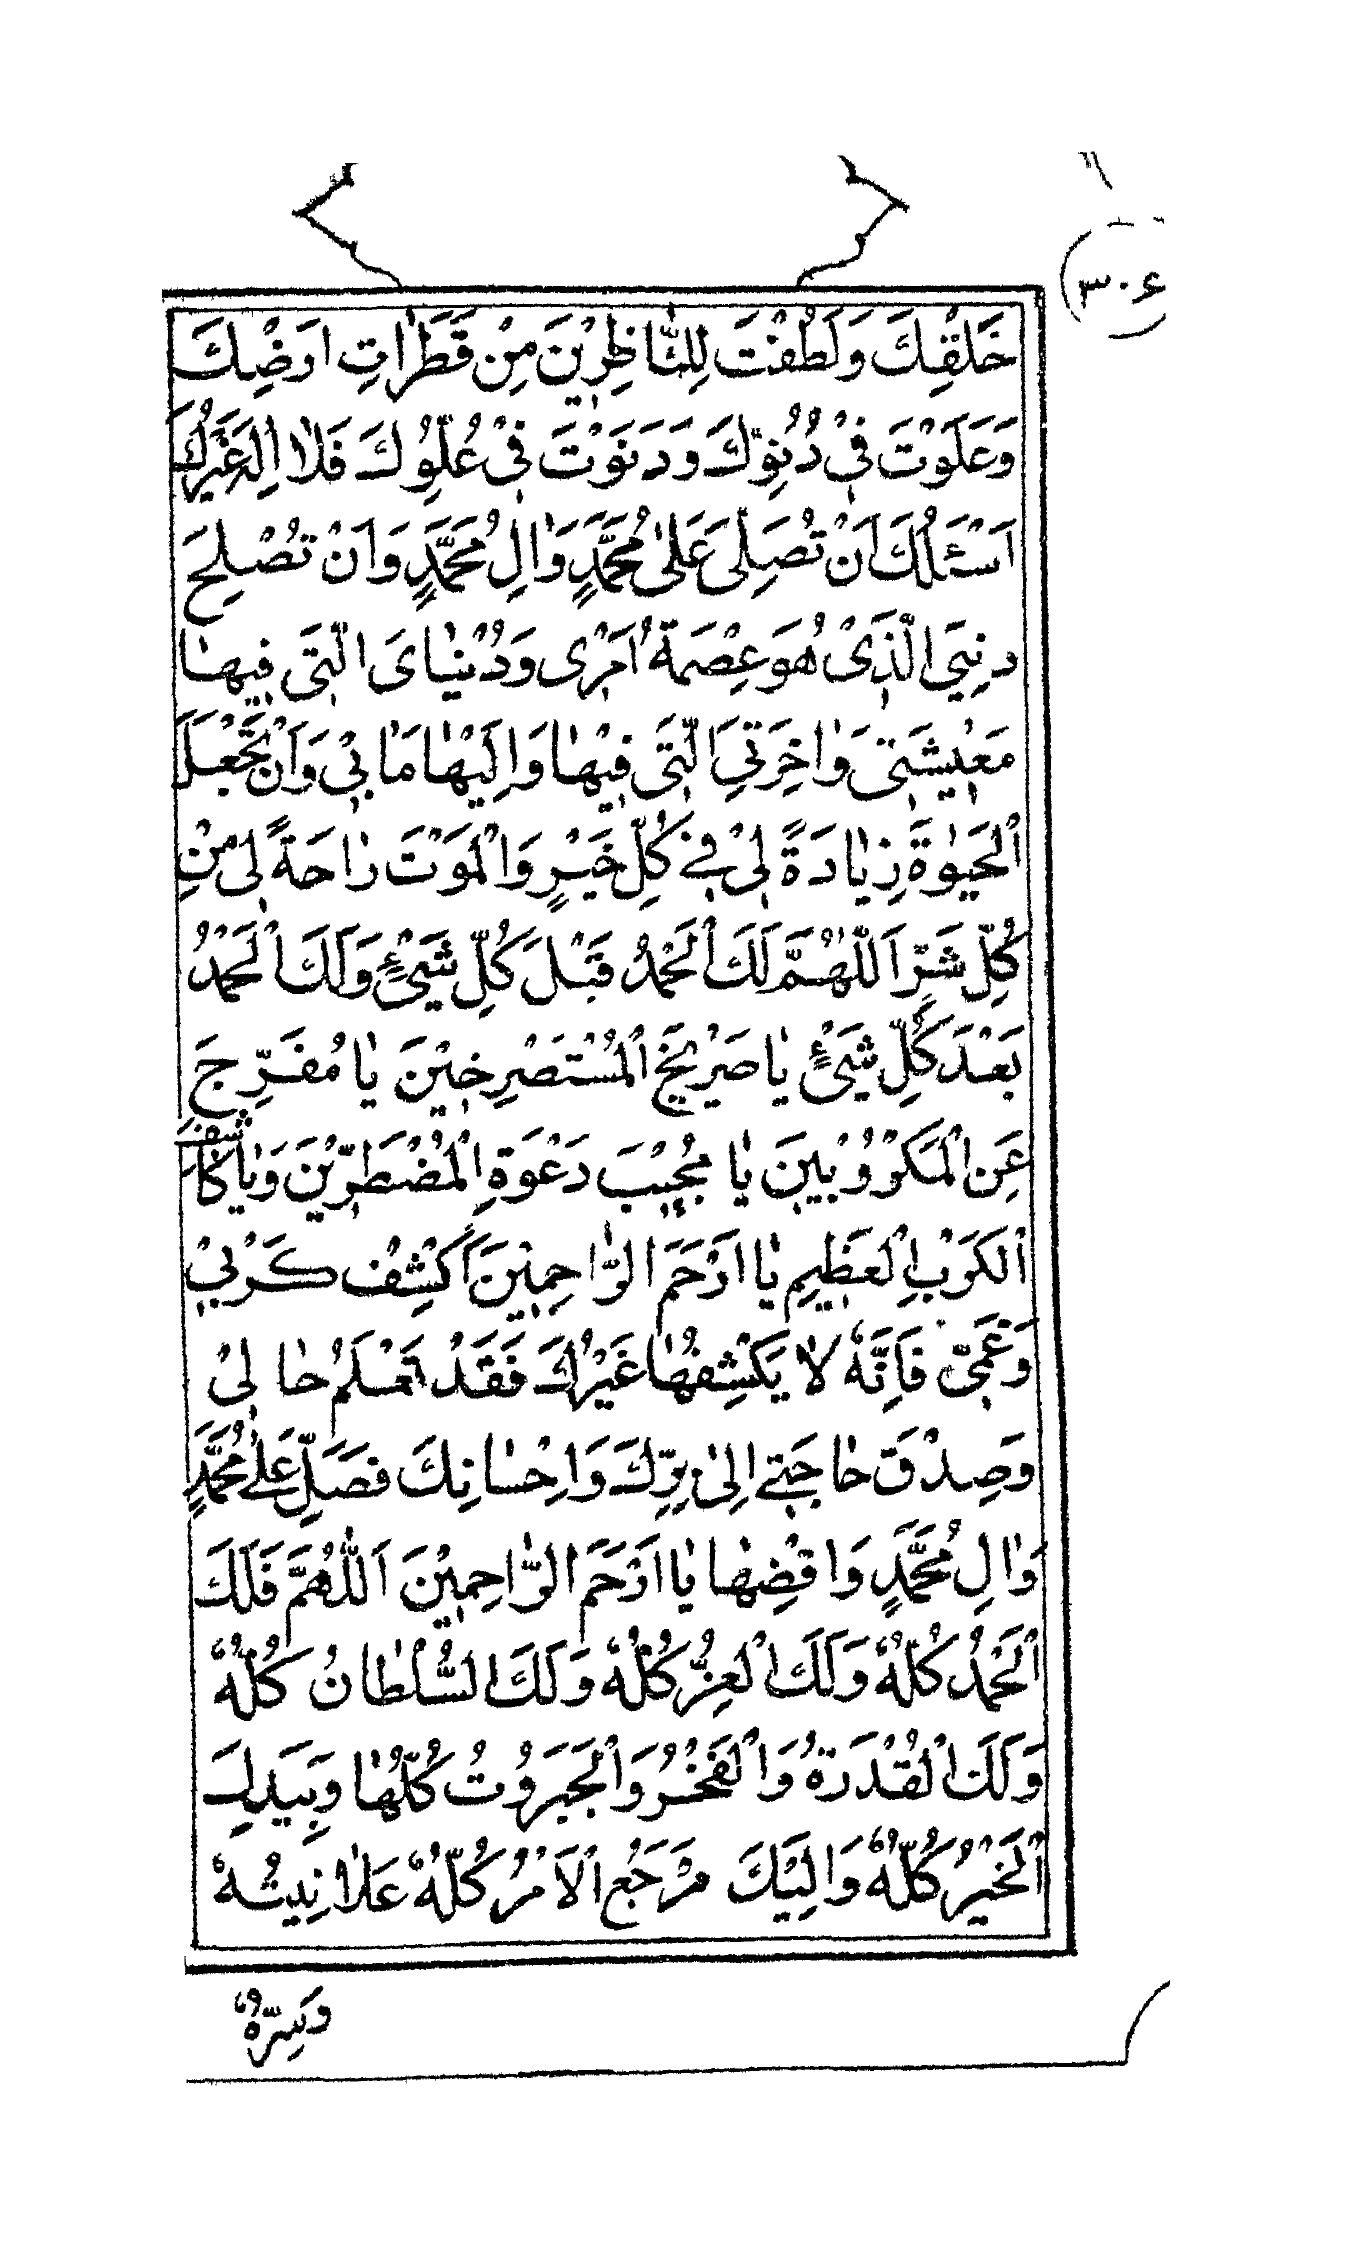 ٣٠۶
خَلْقِكَ وَلَطُفْتَ لِلنّٰاظِرِيْنَ مِنْ قَطَرٰاتِ اَرْضِكَ
وَعَلَوْتَ فِيْ دُنُوِّكَ وَدَنَوْتَ فِيْ عُلُوِّكَ فَلٰا اِلٰهَ غَيْرُكَ
اَسْئَلُكَ اَنْ تُصَلِّىَ عَلىٰ مُحَمَّدٍ وَاٰلِ مُحَمَّدٍ وَاَنْ تُصْلِحَ
دِيْنِيَ الَّذِىْ هُوَ عِصْمَةُ اَمْرِى وَدُنْيٰاىَ الَّتِى فِيهٰا
مَعِيشَتِى وَاٰخِرَتِيَ الَّتِى فِيْهٰا وَاِلَيْهٰا مَاٰبِيْ وَاَنْ تَجْعَلَ
الْحَيٰوةَ زِيٰادَةً لِىْ فِے كُلِّ خَيْرٍ وَالْمَوْتَ رٰاحَةً لِى مِنْ
كُلِّ شَرٍّ اَللّٰهُمَّ لَكَ الْحَمْدُ قَبْلَ كُلِّ شَىْءٍ وَلَكَ الْحَمْدُ
بَعْدَ كُلِّ شَىْءٍ يٰا صَرِيْخَ الْمُسْتَصْرِخِيْنَ يٰا مُفَرِّجَ
عَنِ الْمَكْرُوْبِيْنَ يٰا مُجِيْبَ دَعْوَةِ الْمُضْطَرِّيْنَ وَيٰا كٰاشِفَ
الْكَرْبِ الْعَظِيْمِ يٰا اَرْحَمَ الرّٰاحِمِيْنَ اَكْشِفْ كَرْبِيْ
وَغَمِّىْ فَاِنَّهٗ لٰا يَكْشِفُهٰا غَيْرُكَ فَقَدْ تَعْلَمُ حٰالِىْ
وَصِدْقَ حٰاجَتِے اِلىٰ بِرِّكَ وَاِحْسٰانِكَ فَصَلِّ عَلٰے مُحَمَّدٍ
وَاٰلِ مُحَمَّدٍ وَاقْضِهٰا يٰا اَرْحَمَ الرّٰاحِمِيْنَ اَللّٰهُمَّ فَلَكَ
الْحَمْدُ كُلُّهٗ وَلَكَ الْعِزُّ كُلُّهٗ وَلَكَ السُّلْطٰانُ كُلُّهٗ
وَلَكَ الْقُدْرَةُ وَالْفَخْرُ وَالْجَبَرُوْتُ كُلُّهٰا وَبِيَدِكَ
الْخَيْرُ كُلُّهٗ وَاِلَيْكَ مَرْجَعُ الْاَمْرُ كُلُّهٗ عَلٰانِيَتُهٗ
وَسِرُّهٗ